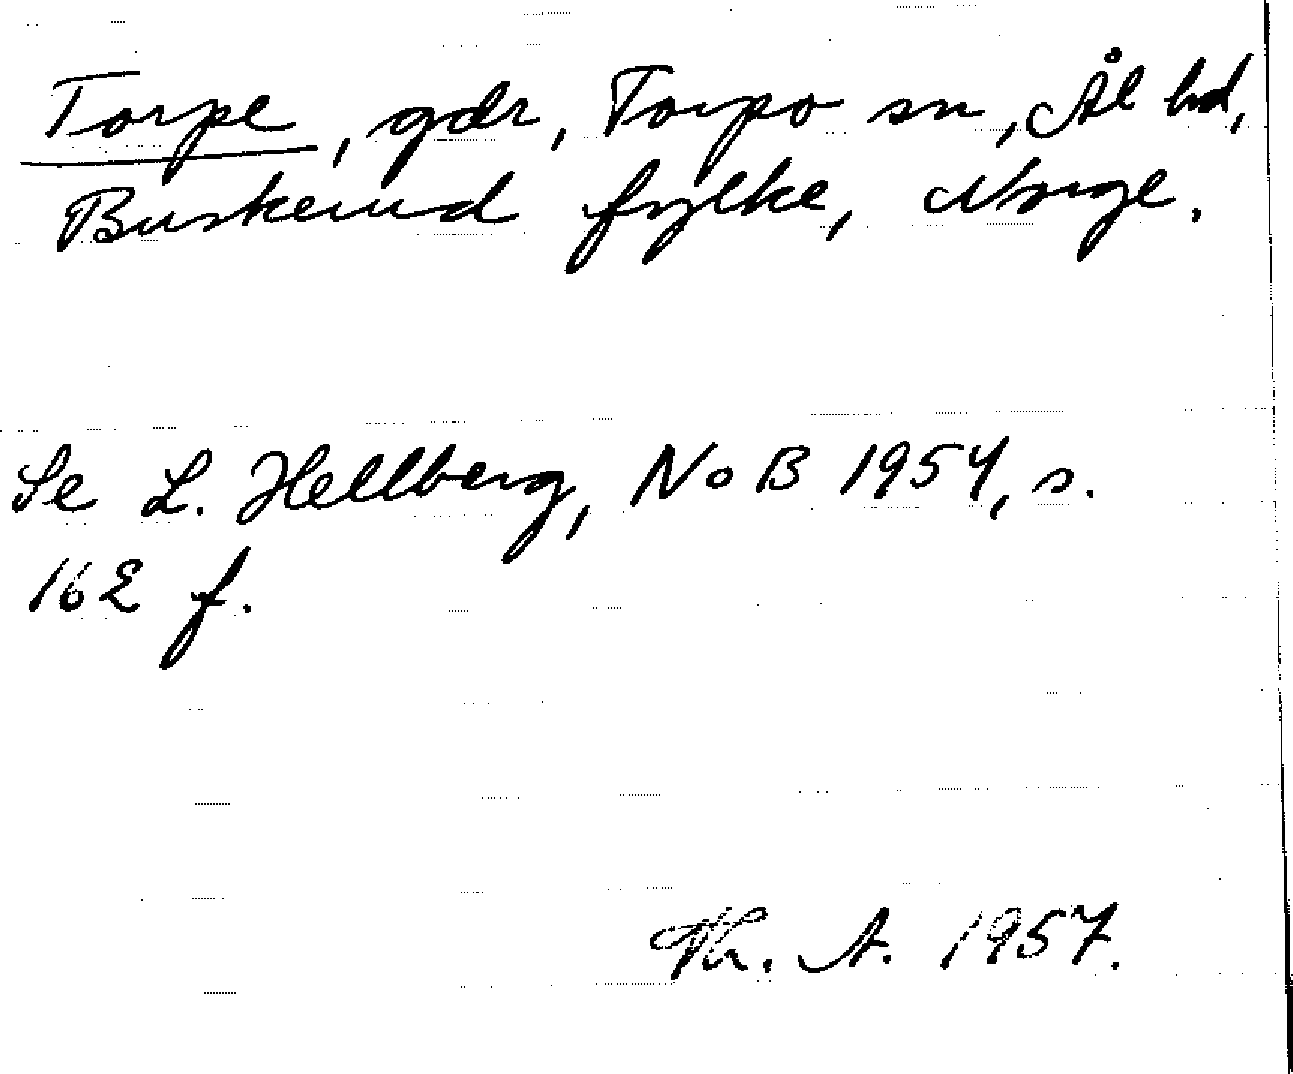 Torpe, gdr, Torpo sn, Ål hd,
Buskerud fylke, Norge.
Se L. Hellberg, NoB 1954, s.
162 f.
Th. A. 1957.